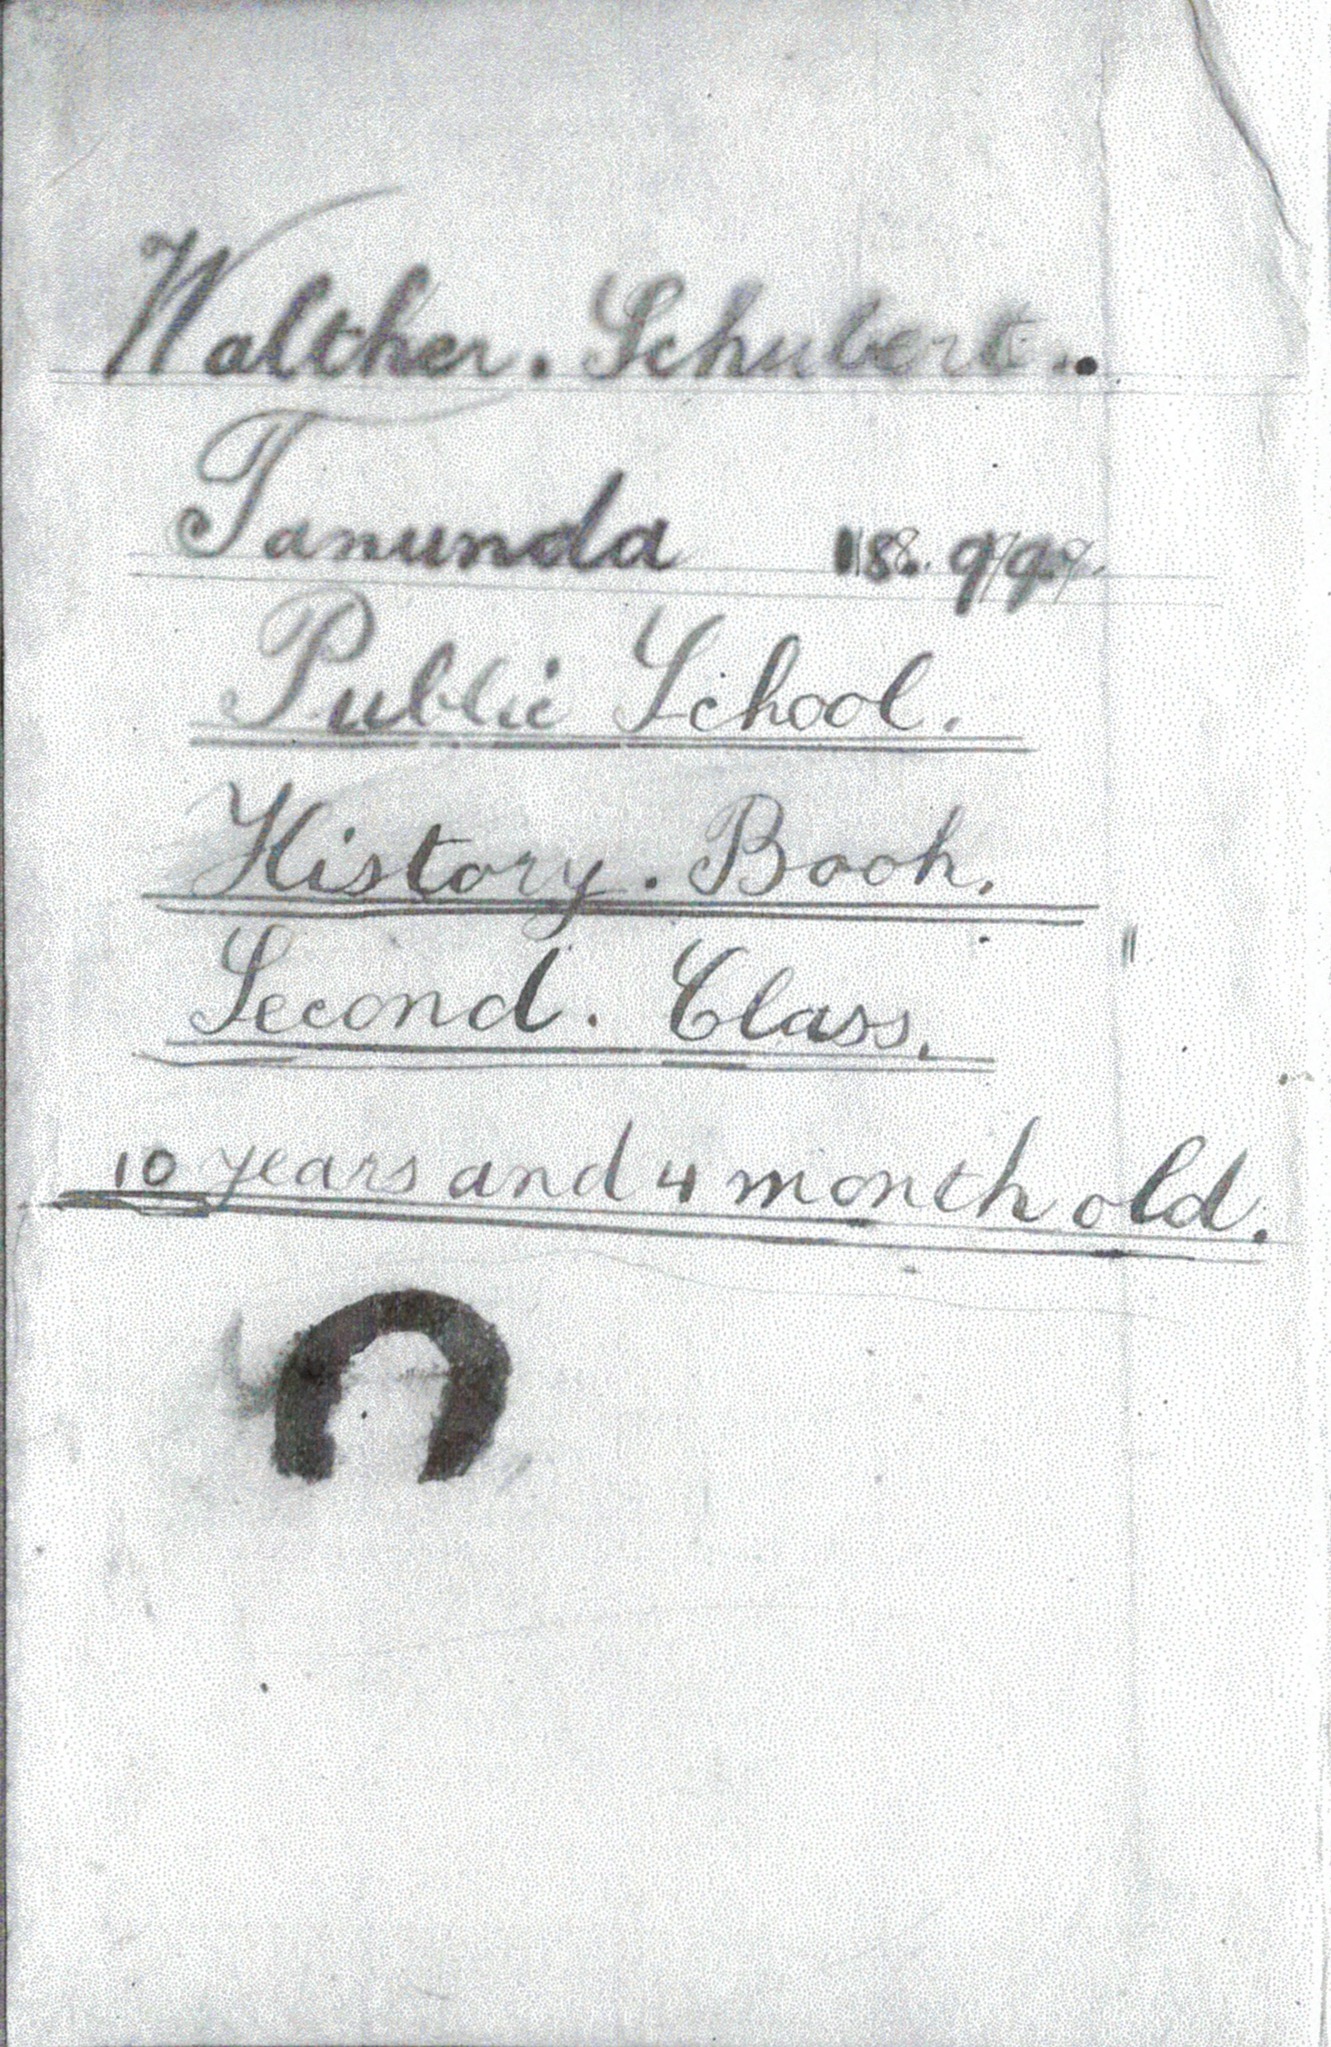 Walther. Schubert..
Tanunda 1899.
Public School.
History. Book.
Second. Class.
10 years and 4 month old.